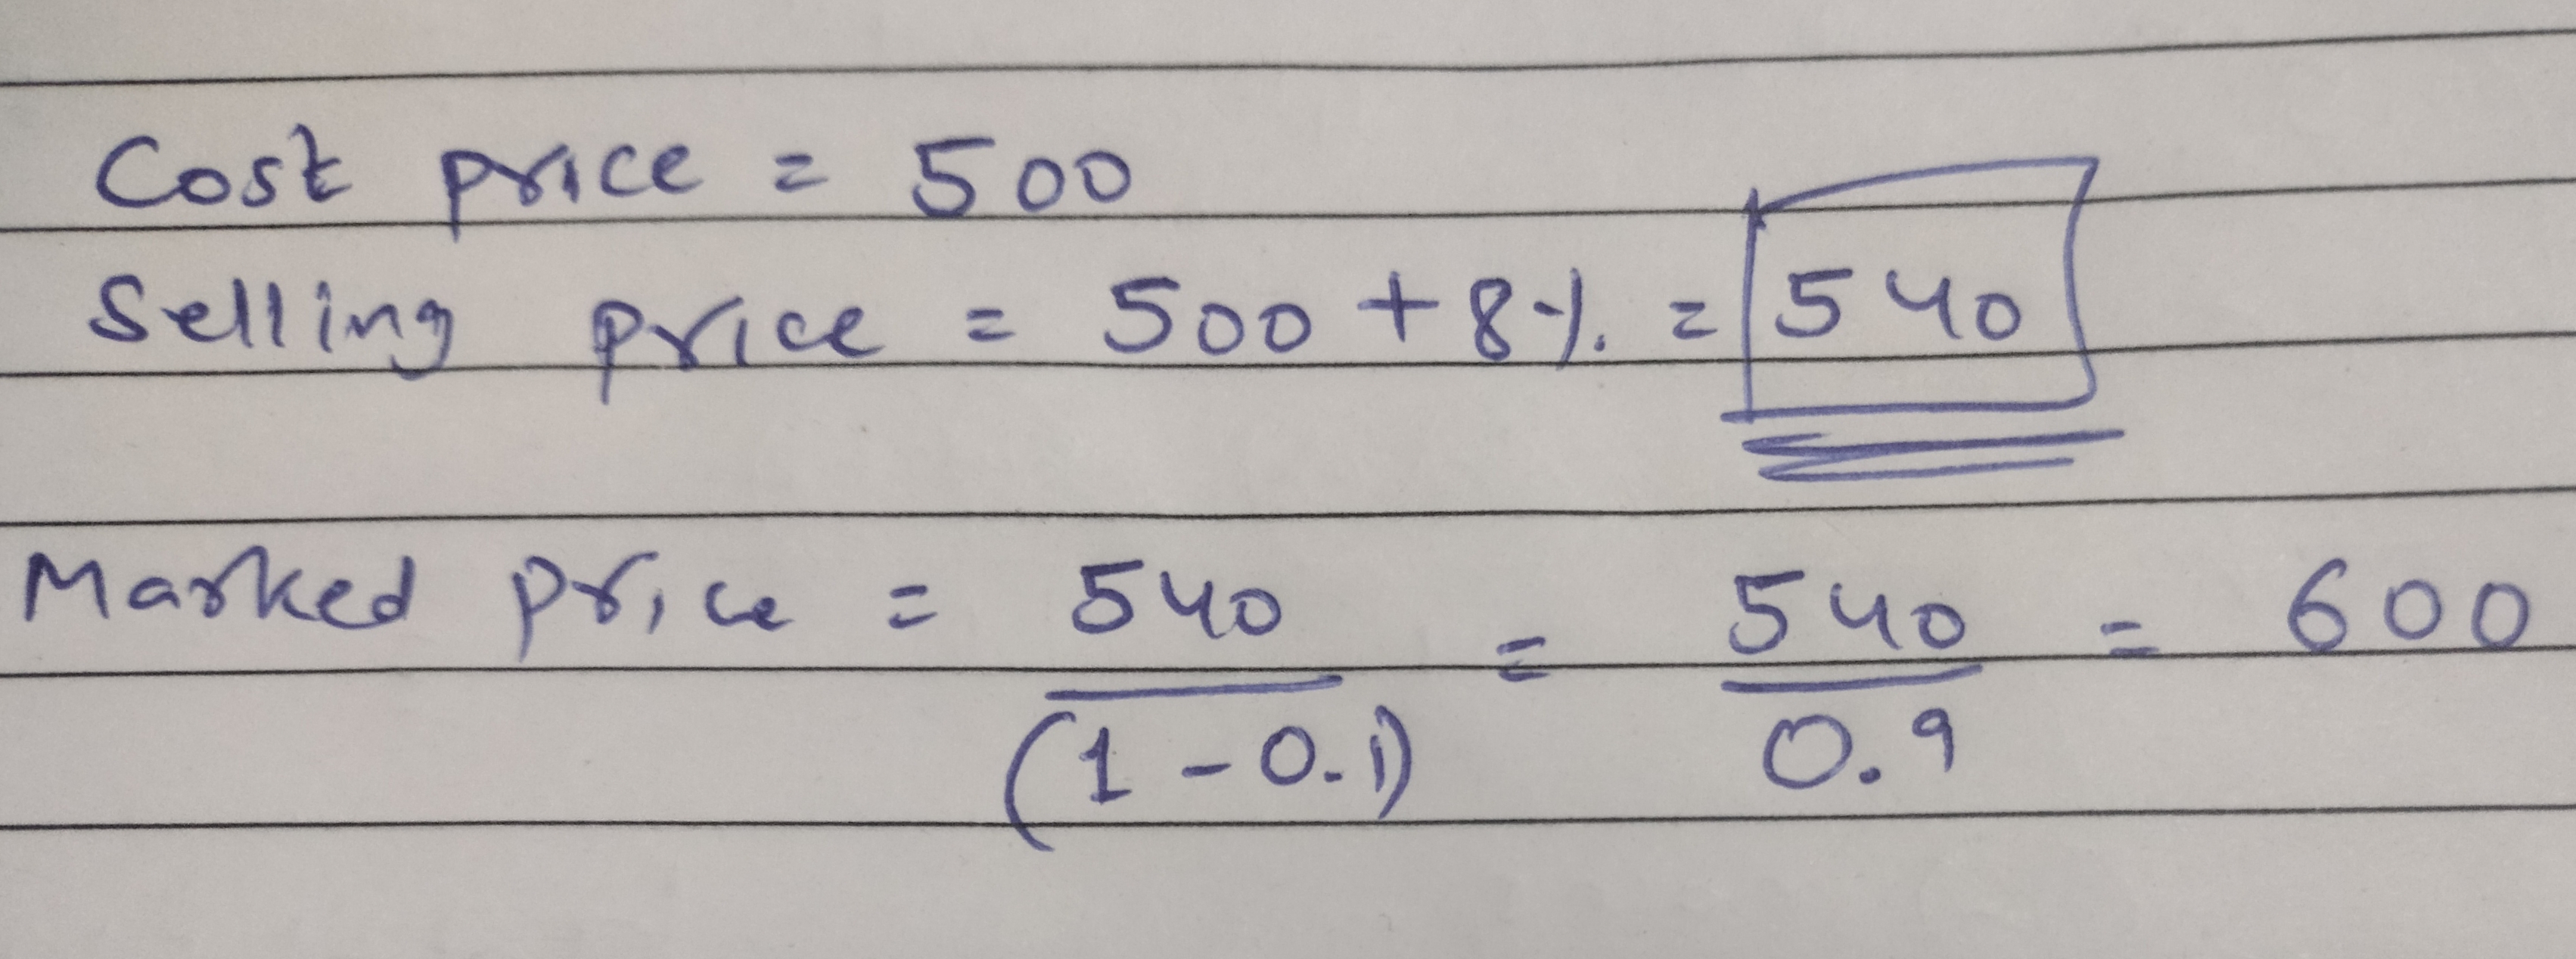 Cost price = 500
Selling price = 500 + 8% = 540
Marked price = 540/(1-0.1) = 540/0.9 = 600